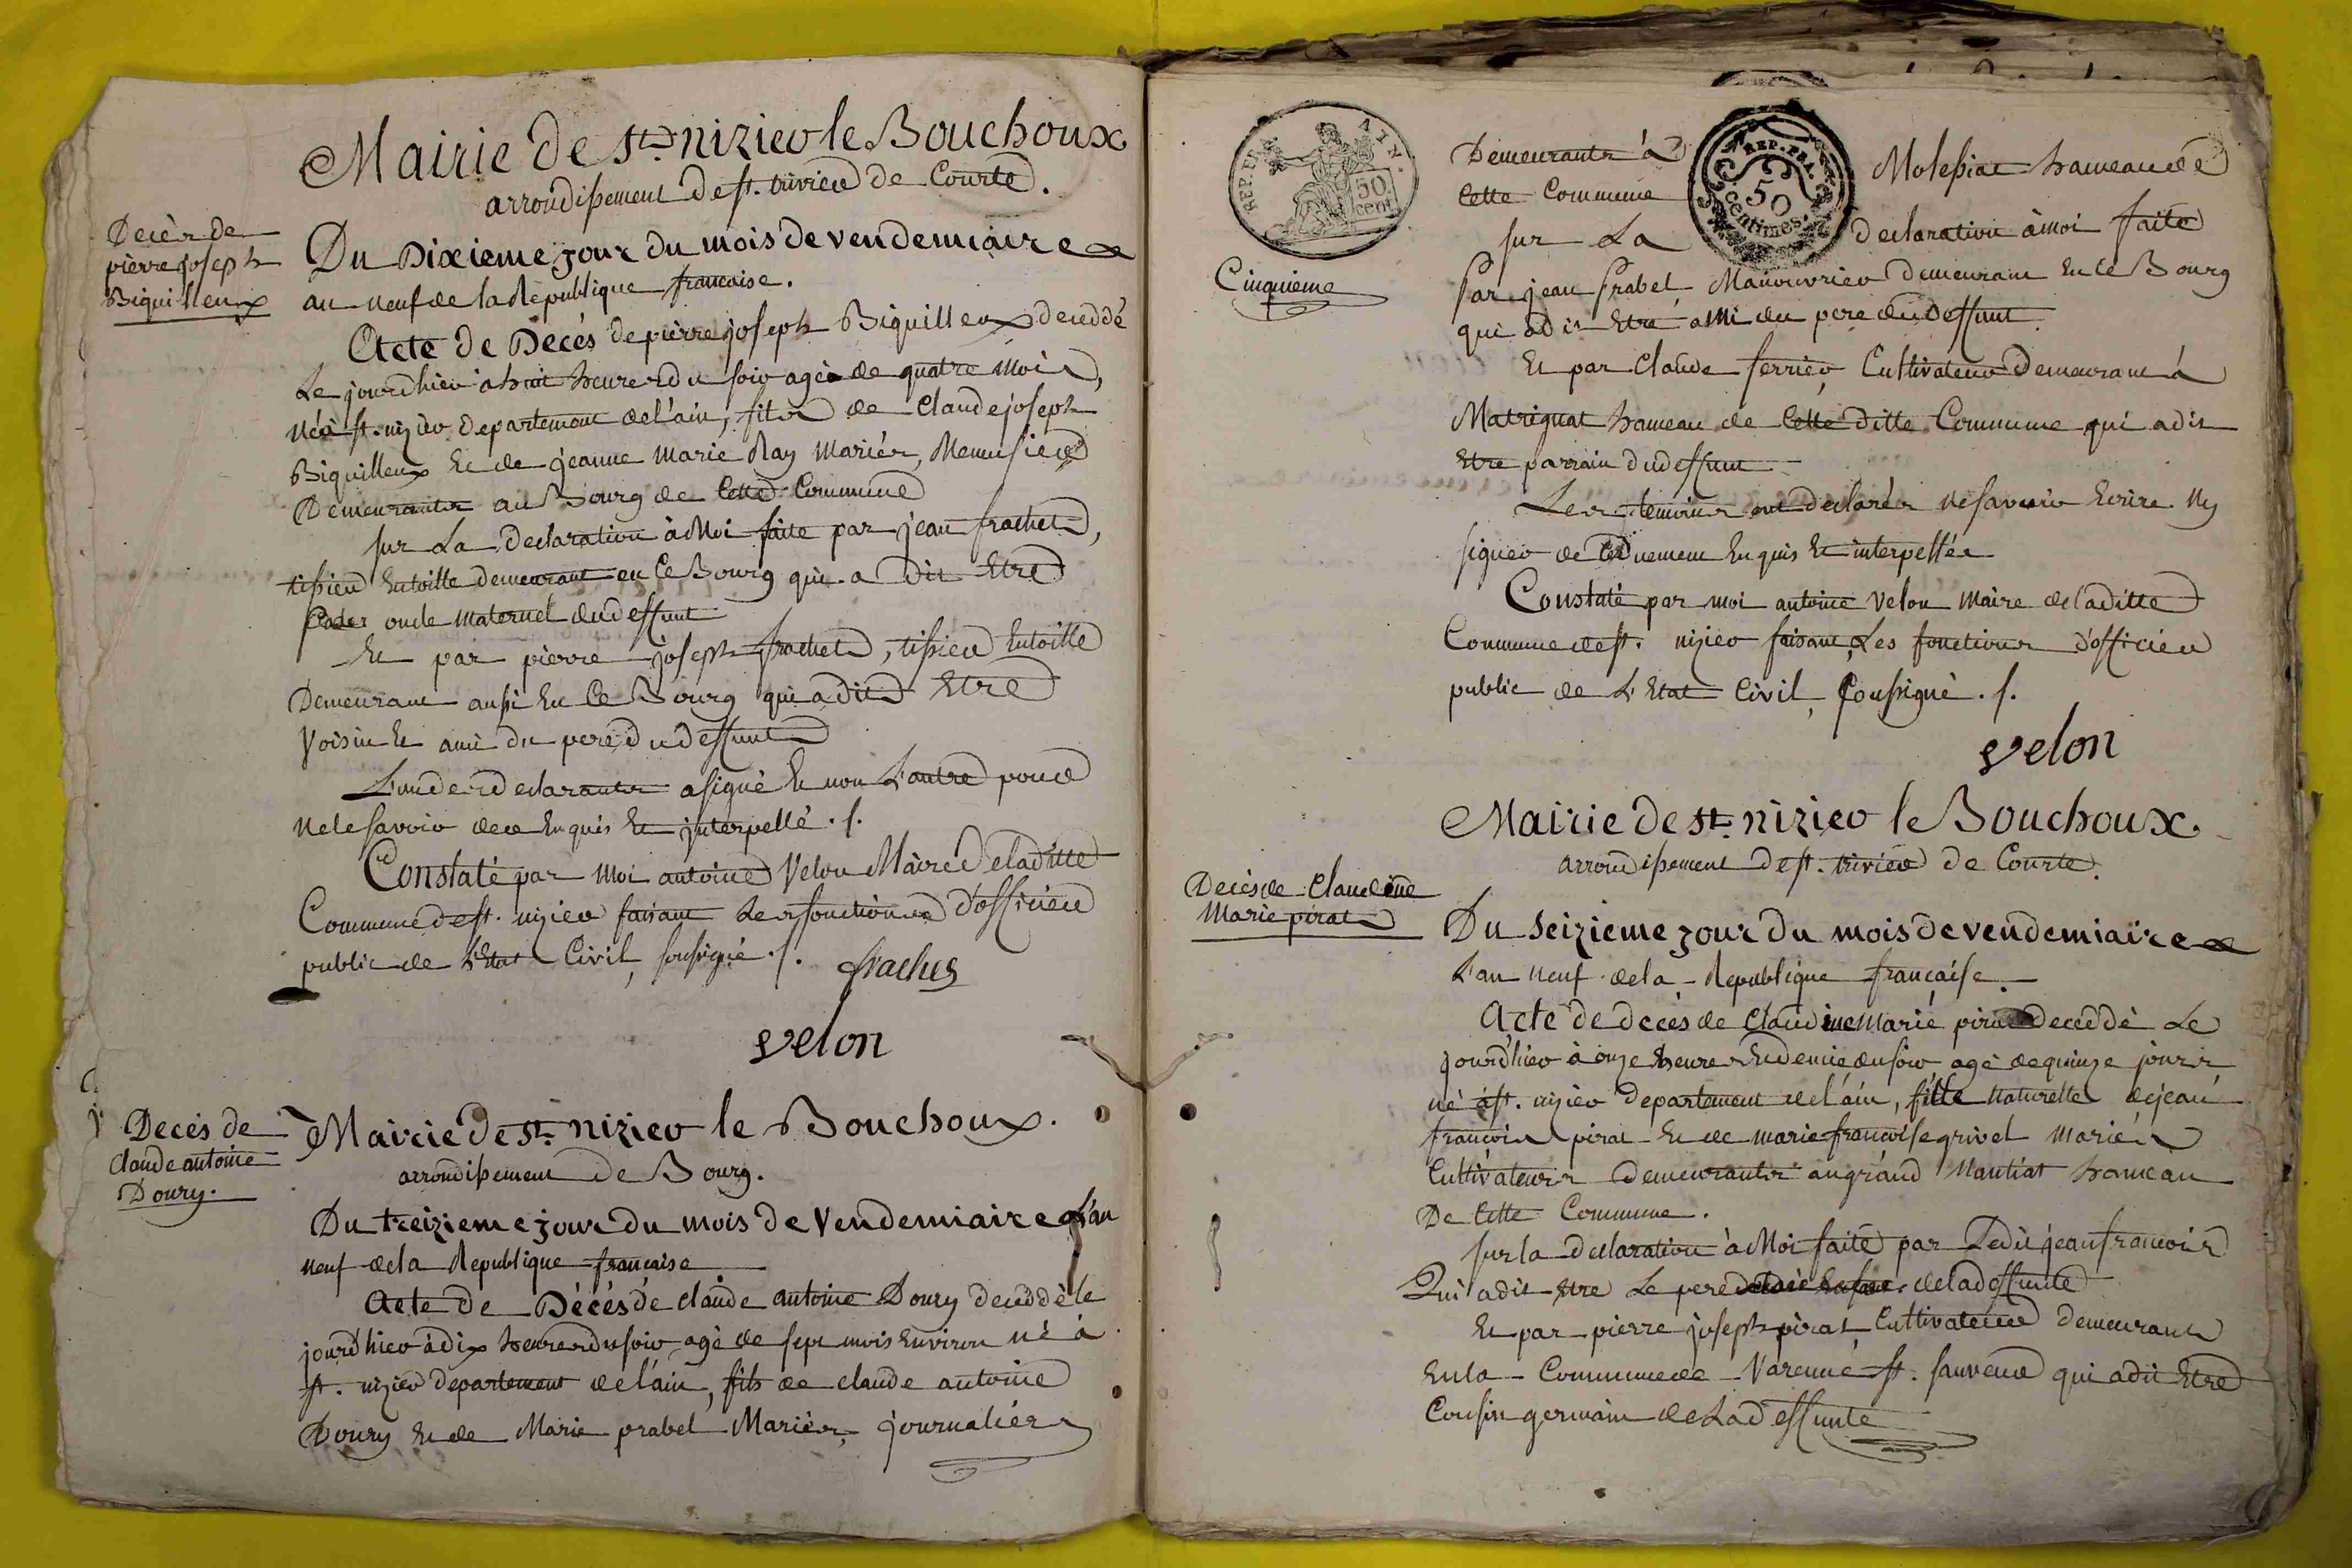 Mairie de st. nizier le Bouchoux
arrondissement de st. trivier de Courte.
Decès de
pierre joseph
Biquilleux
Du Dixieme jour du mois de vendemiaire
an neuf de la République francaise.
Acte de Decés de pierre joseph Biquilleux deceddé
Le jourdhier a huit heures du soir agée de quatre mois,
né à st. nizier departement de l'ain, fils de Claude joseph
Biquilleux Et de jeanne marie Ray mariés, Menusier
Demeurants au Bourg de Cette Commune
sur La Declaration à Moi faite par jean frachet,
tissieu En toille demeurant en Ce Bourg qui a dit Etre
oncle maternel du deffunt
Et par pierre joseph frachet, tissieu En toille
Demeurant aussi En Ce Bourg qui a dit Etre
Voisin Et ami du pere du deffunt
L'un des declarants a signé Et non L'autre pour
ne le savoir de ce Enquis Et interpellé ./.
Constaté par Moi antoine Velon Maire de la ditte
Commune de st. nizier faisant Les fonctions d'officier
public de L'Etat Civil, sousigné ./. frachet
velon
Decés de
Claude antoine
Doury.
Mairie de st. nizier le Bouchoux.
arrondissement de Bourg.
Du treizieme jour du mois de Vendemiaire L'an
neuf de la Republique francaise
Acte de Décés de claude antoine Doury deceddè le
jourdhier à dix heures du soir agé de sept mois Environ né à
st. nizier departement de l'ain, fils de claude antoine
Doury Et de Marie prabel Mariés, journaliers
REP. FRA. AIN.
50 cent
REP. FRA.
50
centimes
Cinquieme
Demeurants à Molessiat hameau de
Cette Commune
sur La declaration à moi faite
Par jean Prabel Manouvrier Demeurant En Ce Bourg
qui a dit Etre ami du pere du Deffunt.
Et par Claude ferrier, Cultivateur Demeurant à
Matrignat hameau de Cette ditte Commune qui a dit
Etre parrain du deffunt
Les temoins ont declarés ne savoir Ecrire Ny
signer de Enquis Et interpellés
Constaté par moi antoine Velon Maire de la ditte
Commune de st. nizier faisant Les fonctions d'officier
public de L'Etat Civil, soussigné ./.
velon
Mairie de st. nizier le Bouchoux.
arrondissement de st. trivier de Courte.
Decès de Claudine
Marie pirat
Du Seizieme jour du mois de vendemiaire
L'an neuf de la Republique francaise
Acte de decés de Claudine Marie pirat deceddè Le
jourd'hier à onze heures Et demie du soir agé de quinze jours
né à st. nizier departement de l'ain, fille Naturelle de jean
francois pirat Et de marie francoise grivel mariés
Cultivateurs demeurants au grand Nantiat hameau
De Cette Commune.
sur la declaration à Moi faite par Ledit jean francois
Qui a dit Etre Le pere de la deffunte
Et par pierre joseph pirat Cultivateur demeurant
En la Commune de Varenne st. sauveur qui a dit Etre
Cousin germain de La deffunte